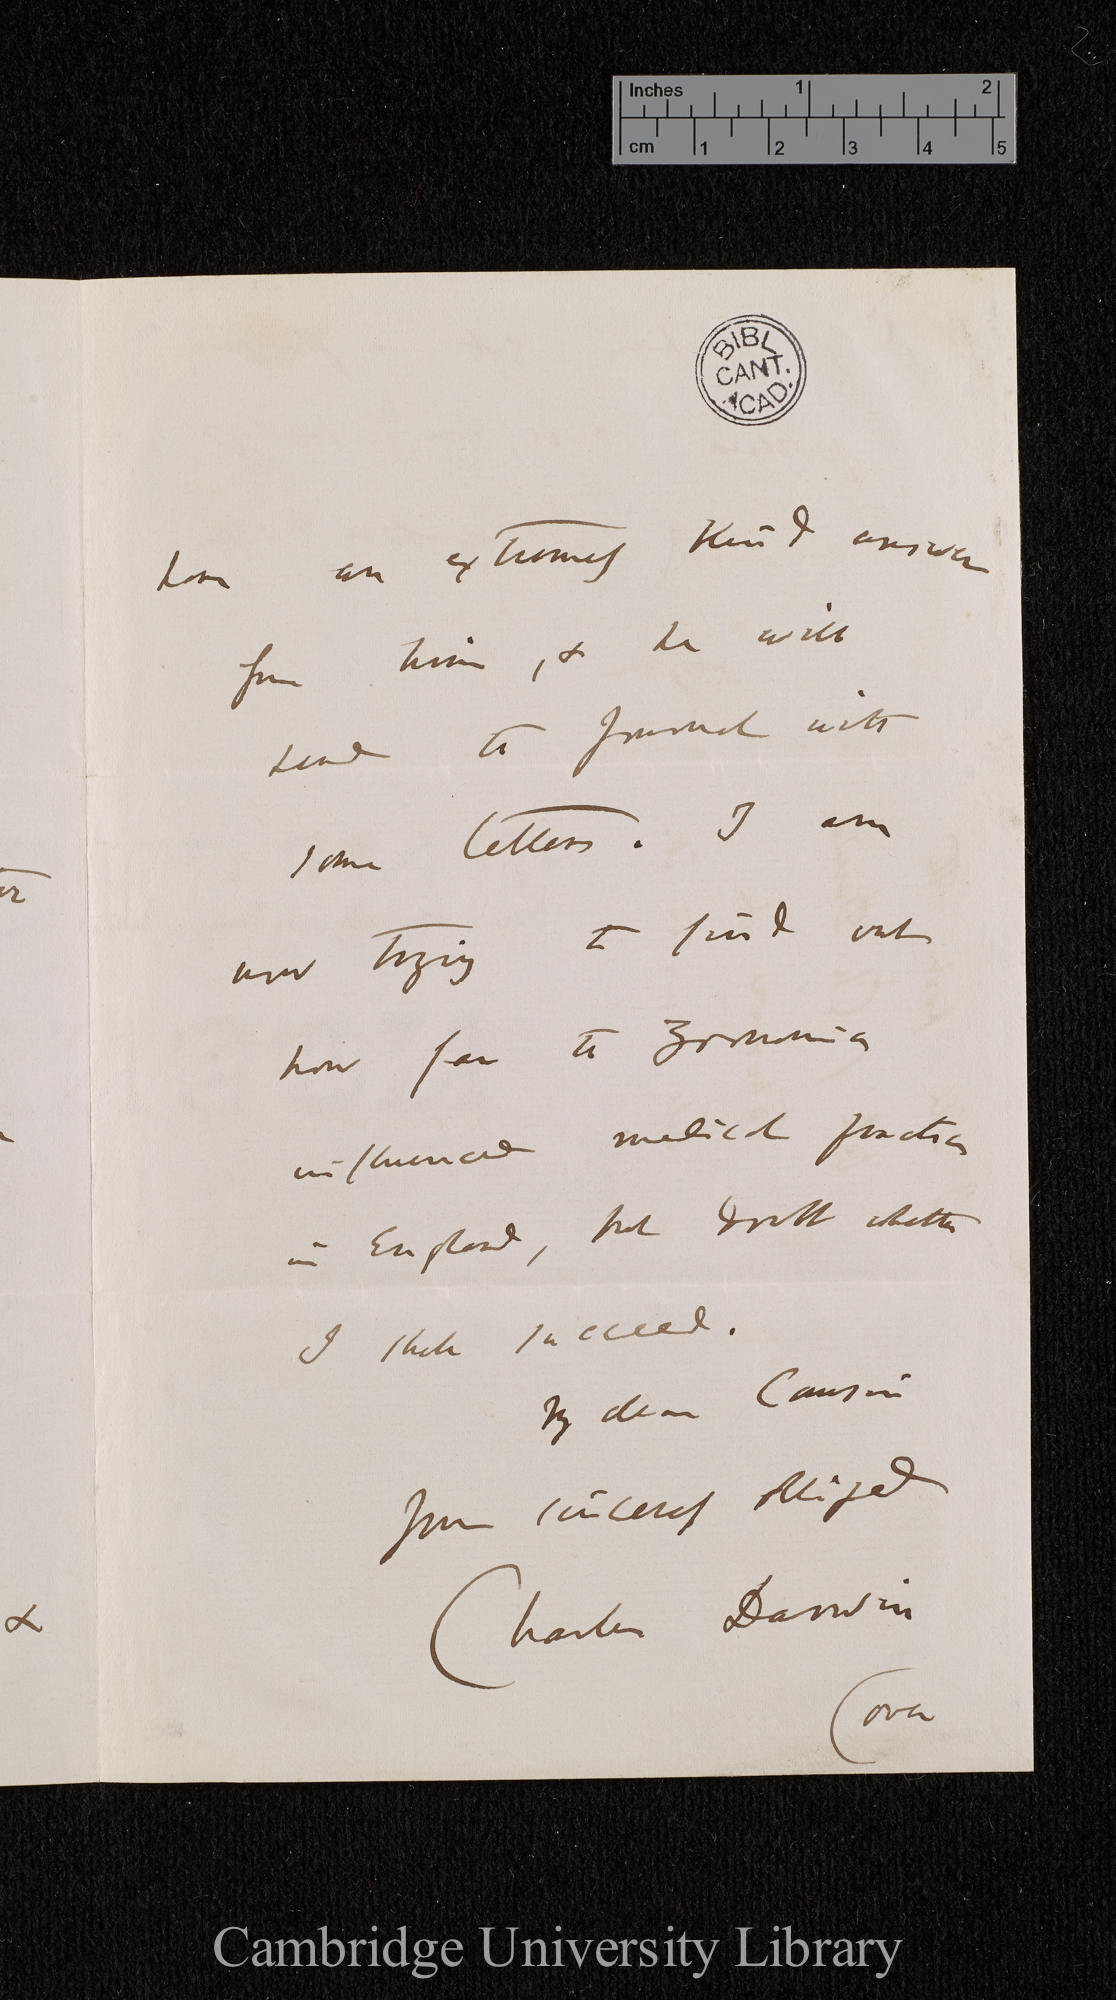 Inches 1 2
cm 1 2 3 4 5
BIBL
CANT.
ACAD.
have an extremely kind answer
from him, & he will
send the journal with
some letters. I am
now trying to find out
how far the Zoonomia
influenced medical practice
in England, but doubt whether
I shall succeed.
My dear Cousin
Yours sincerely obliged
Charles Darwin
(over
&
Cambridge University Library